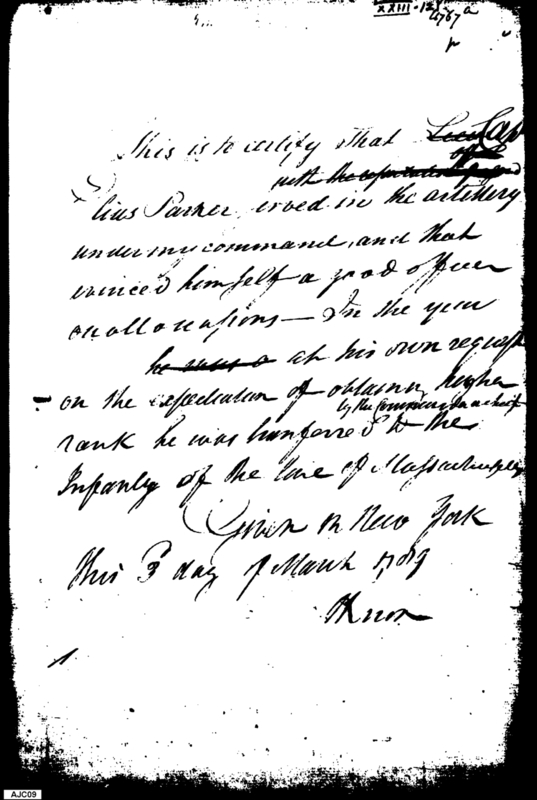 XXIII-124
4767 a
This is to certify that Cap
with the
Elias Parker served in the artillery
under my command, and that
evinced himself a good officer
on all occasions — In the year
he was a at his own request
on the expectation of obtaining higher
by the Commander in chief
rank he was transferred to the
Infantry of the line of Massachusetts
Given in New York
this 3 day of March 1789
HKnox
AJC09